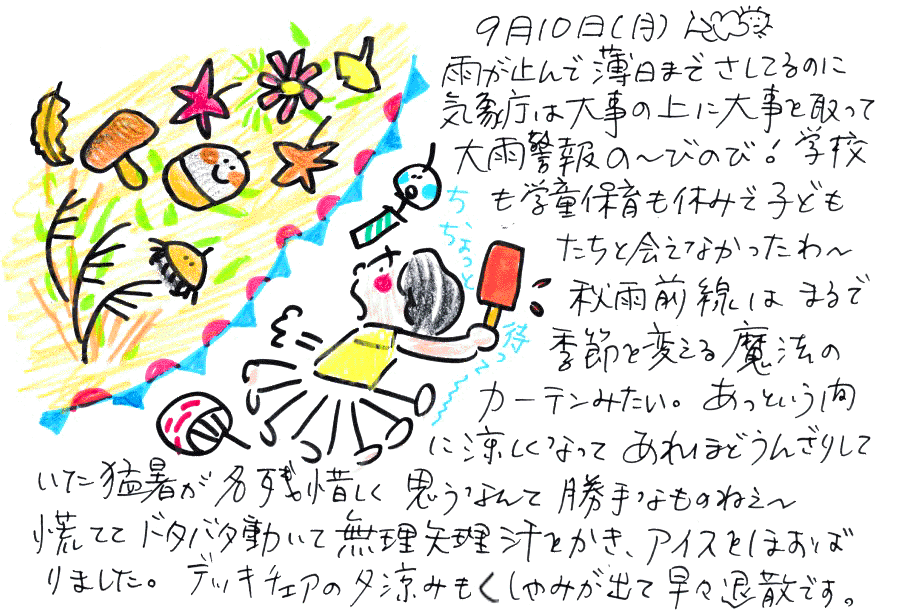 9月10日(月)
雨が止んで薄日までさしてるのに
気象庁は大事の上に大事を取って
大雨警報の〜びのび！学校
も学童保育も休みで子ども
たちと会えてなかったわ〜
秋雨前線はまるで
季節を変える魔法の
カーテンみたい。あっという間
に涼しくなってあれほどうんざりして
いた猛暑が名残惜しく思うなんて勝手なものねえ〜
慌ててドタバタ動いて無理矢理汗をかき、アイスをほおば
りました。デッキチェアの夕涼みもくしゃみが出て早々退散です。
ちょっと
待って〜